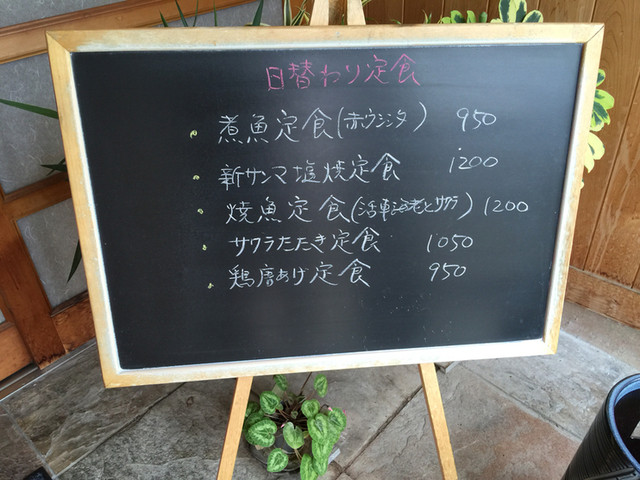 日替わり定食
煮魚定食(赤ウシシタ) 950
新サンマ塩焼定食 1200
焼魚定食(活車海老とサワラ) 1200
サワラたたき定食 1050
鶏唐あげ定食 950